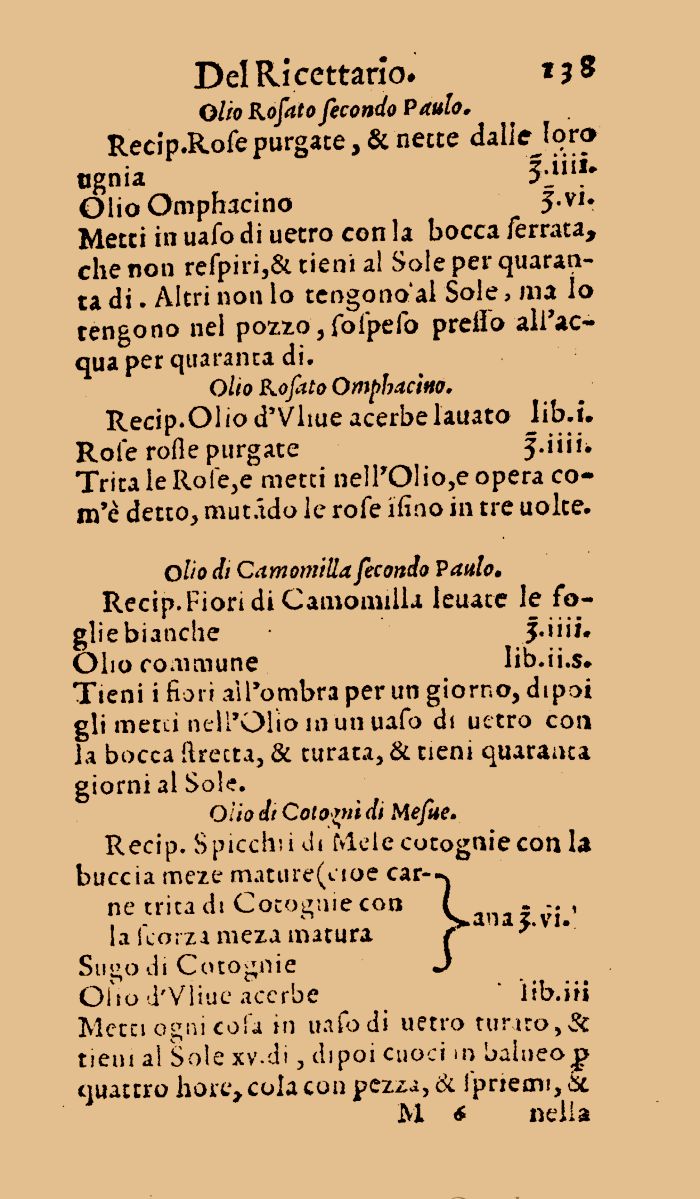 Del Ricettario. 138
Olio Roſato ſecondo Paulo.
Recip. Roſe purgate, & nette dalle loro
ugnia ℥.iiii.
Olio Omphacino ℥.vi.
Metti in uaſo di uetro con la bocca ſerrata,
che non reſpiri,& tieni al Sole per quaran-
ta di. Altri non lo tengono al Sole, ma lo
tengono nel pozzo, ſoſpeſo preſſo all'ac-
qua per quaranta di.
Olio Roſato Omphacino.
Recip. Olio d'Vliue acerbe lauato lib.i.
Roſe roſſe purgate ℥.iiii.
Trita le Roſe,e metti nell'Olio,e opera co-
m'è detto, mutãdo le roſe iſino in tre uolte.
Olio di Camomilla ſecondo Paulo.
Recip. Fiori di Camomilla leuate le fo-
glie bianche ℥.iiii.
Olio commune lib.ii.s.
Tieni i fiori all'ombra per un giorno, dipoi
gli metti nell'Olio in un uaſo di uetro con
la bocca ſtretta, & turata, & tieni quaranta
giorni al Sole.
Olio di Cotogni di Meſue.
Recip. Spicchii di Mele cotognie con la
buccia meze mature(cioe car-
ne trita di Cotognie con
la ſcorza meza matura
Sugo di Cotognie } ana ℥.vi.
Olio d'Vliue acerbe lib.iii
Metti ogni coſa in uaſo di uetro turato, &
tieni al Sole xv.di, dipoi cuoci in balneo ꝑ
quattro hore, cola con pezza, & ſpriemi, &
M 6 nella